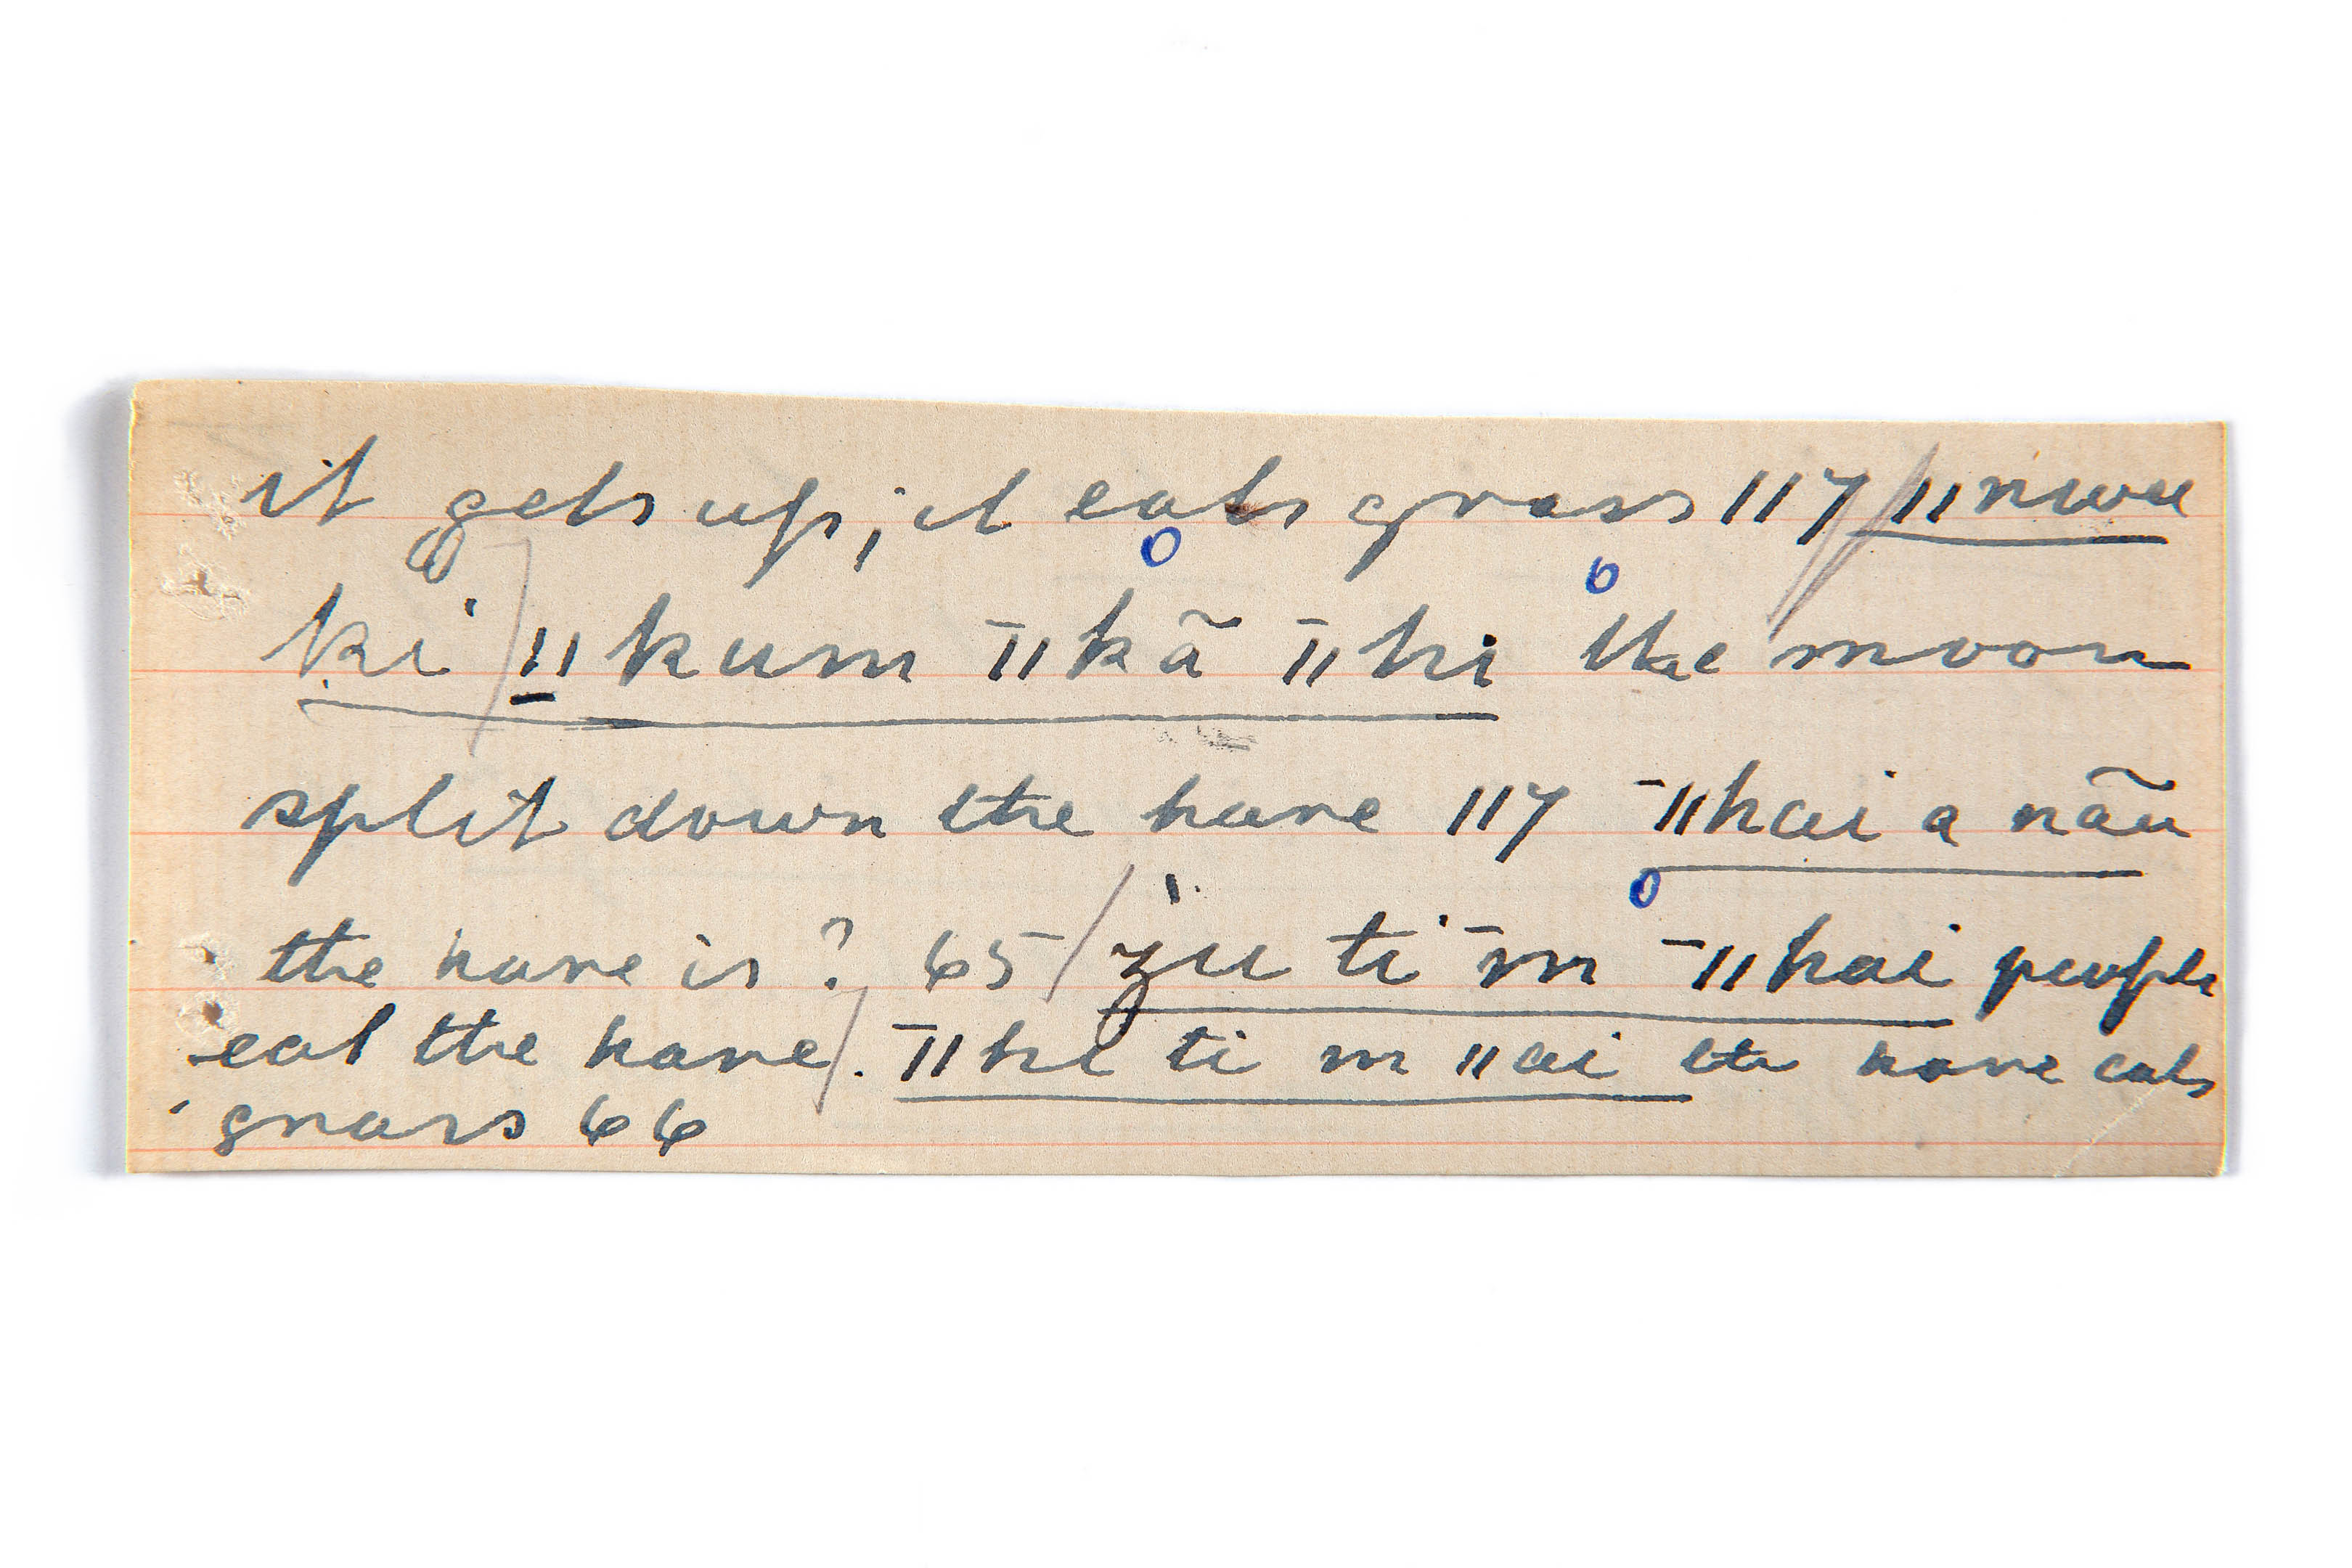 it gets up; it eats grass 117 ǁnwu
ki ǁkum ˉǁkã ˉǁhi the moon
split down the hare 117 ˉǁhai a nãu
the hare is? 65 žu ti ˉm ˉǁhai people
eat the hare. ˉǁhi ti m ǁai the hare eats
grass 66